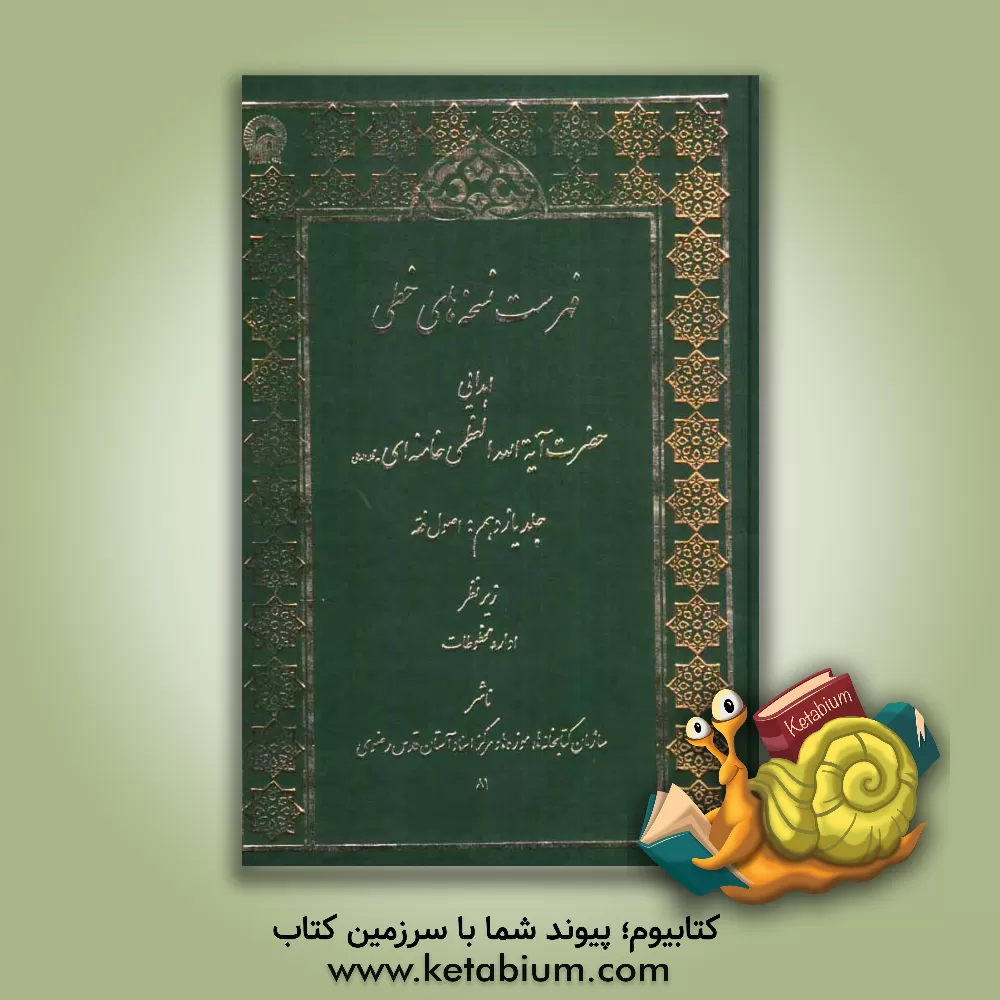 فهرست نسخه‌های خطی
اهدایی
حضرت آیة الله العظمی خامنه‌ای
جلد یازدهم: اصول فقه
زیر نظر
اداره مخطوطات
ناشر
سازمان کتابخانه‌ها، موزه‌ها و مرکز اسناد آستان قدس رضوی
۸۱
Ketabium
کتابیوم؛ پیوند شما با سرزمین کتاب
www.ketabium.com